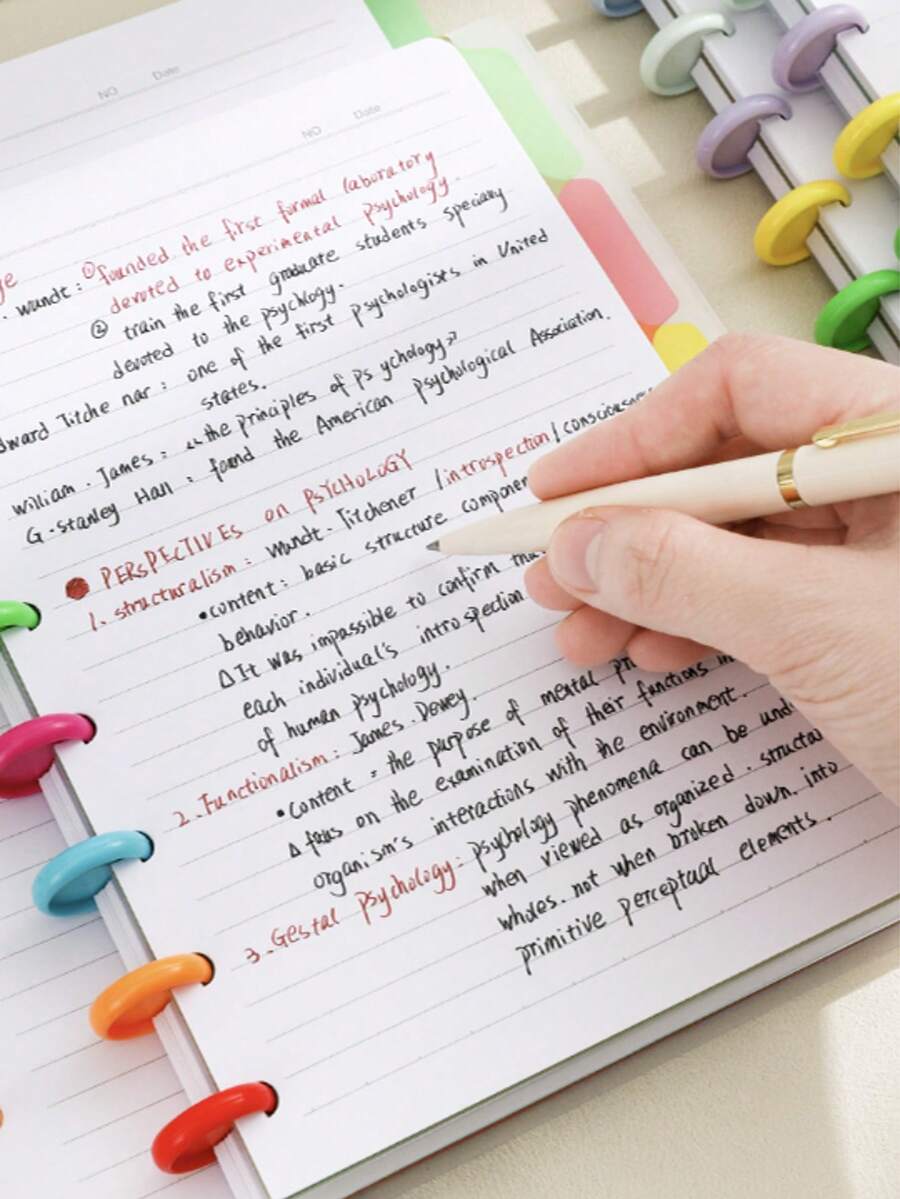 NO Date
NO Date
. Wundt : ① founded the first formal laboratory
devoted to experimental psychology.
② train the first graduate students specialy
devoted to the psychlogy.
dward Titche nar : one of the first psychologists in United
states.
William . James : «the principles of ps ychology»
G. Stanley Hall : found the American psychological Association.
PERSPECTIVES on PSYCHOLOGY
1. structuralism : Wundt. Titchener / introspection / consciousness
• content : basic structure componen
behavior.
△ It was impassible to confirm
each individual's introspection
of human psychology.
2. Functionalism : James. Dewey.
• content : the purpose of mental
△ fous on the examination of their functions in
organism's interactions with the environment.
3. Gestal psychology : psychology phenomena can be und
when viewed as organized. structu
wholes. not when broken down. into
primitive perceptual elements.